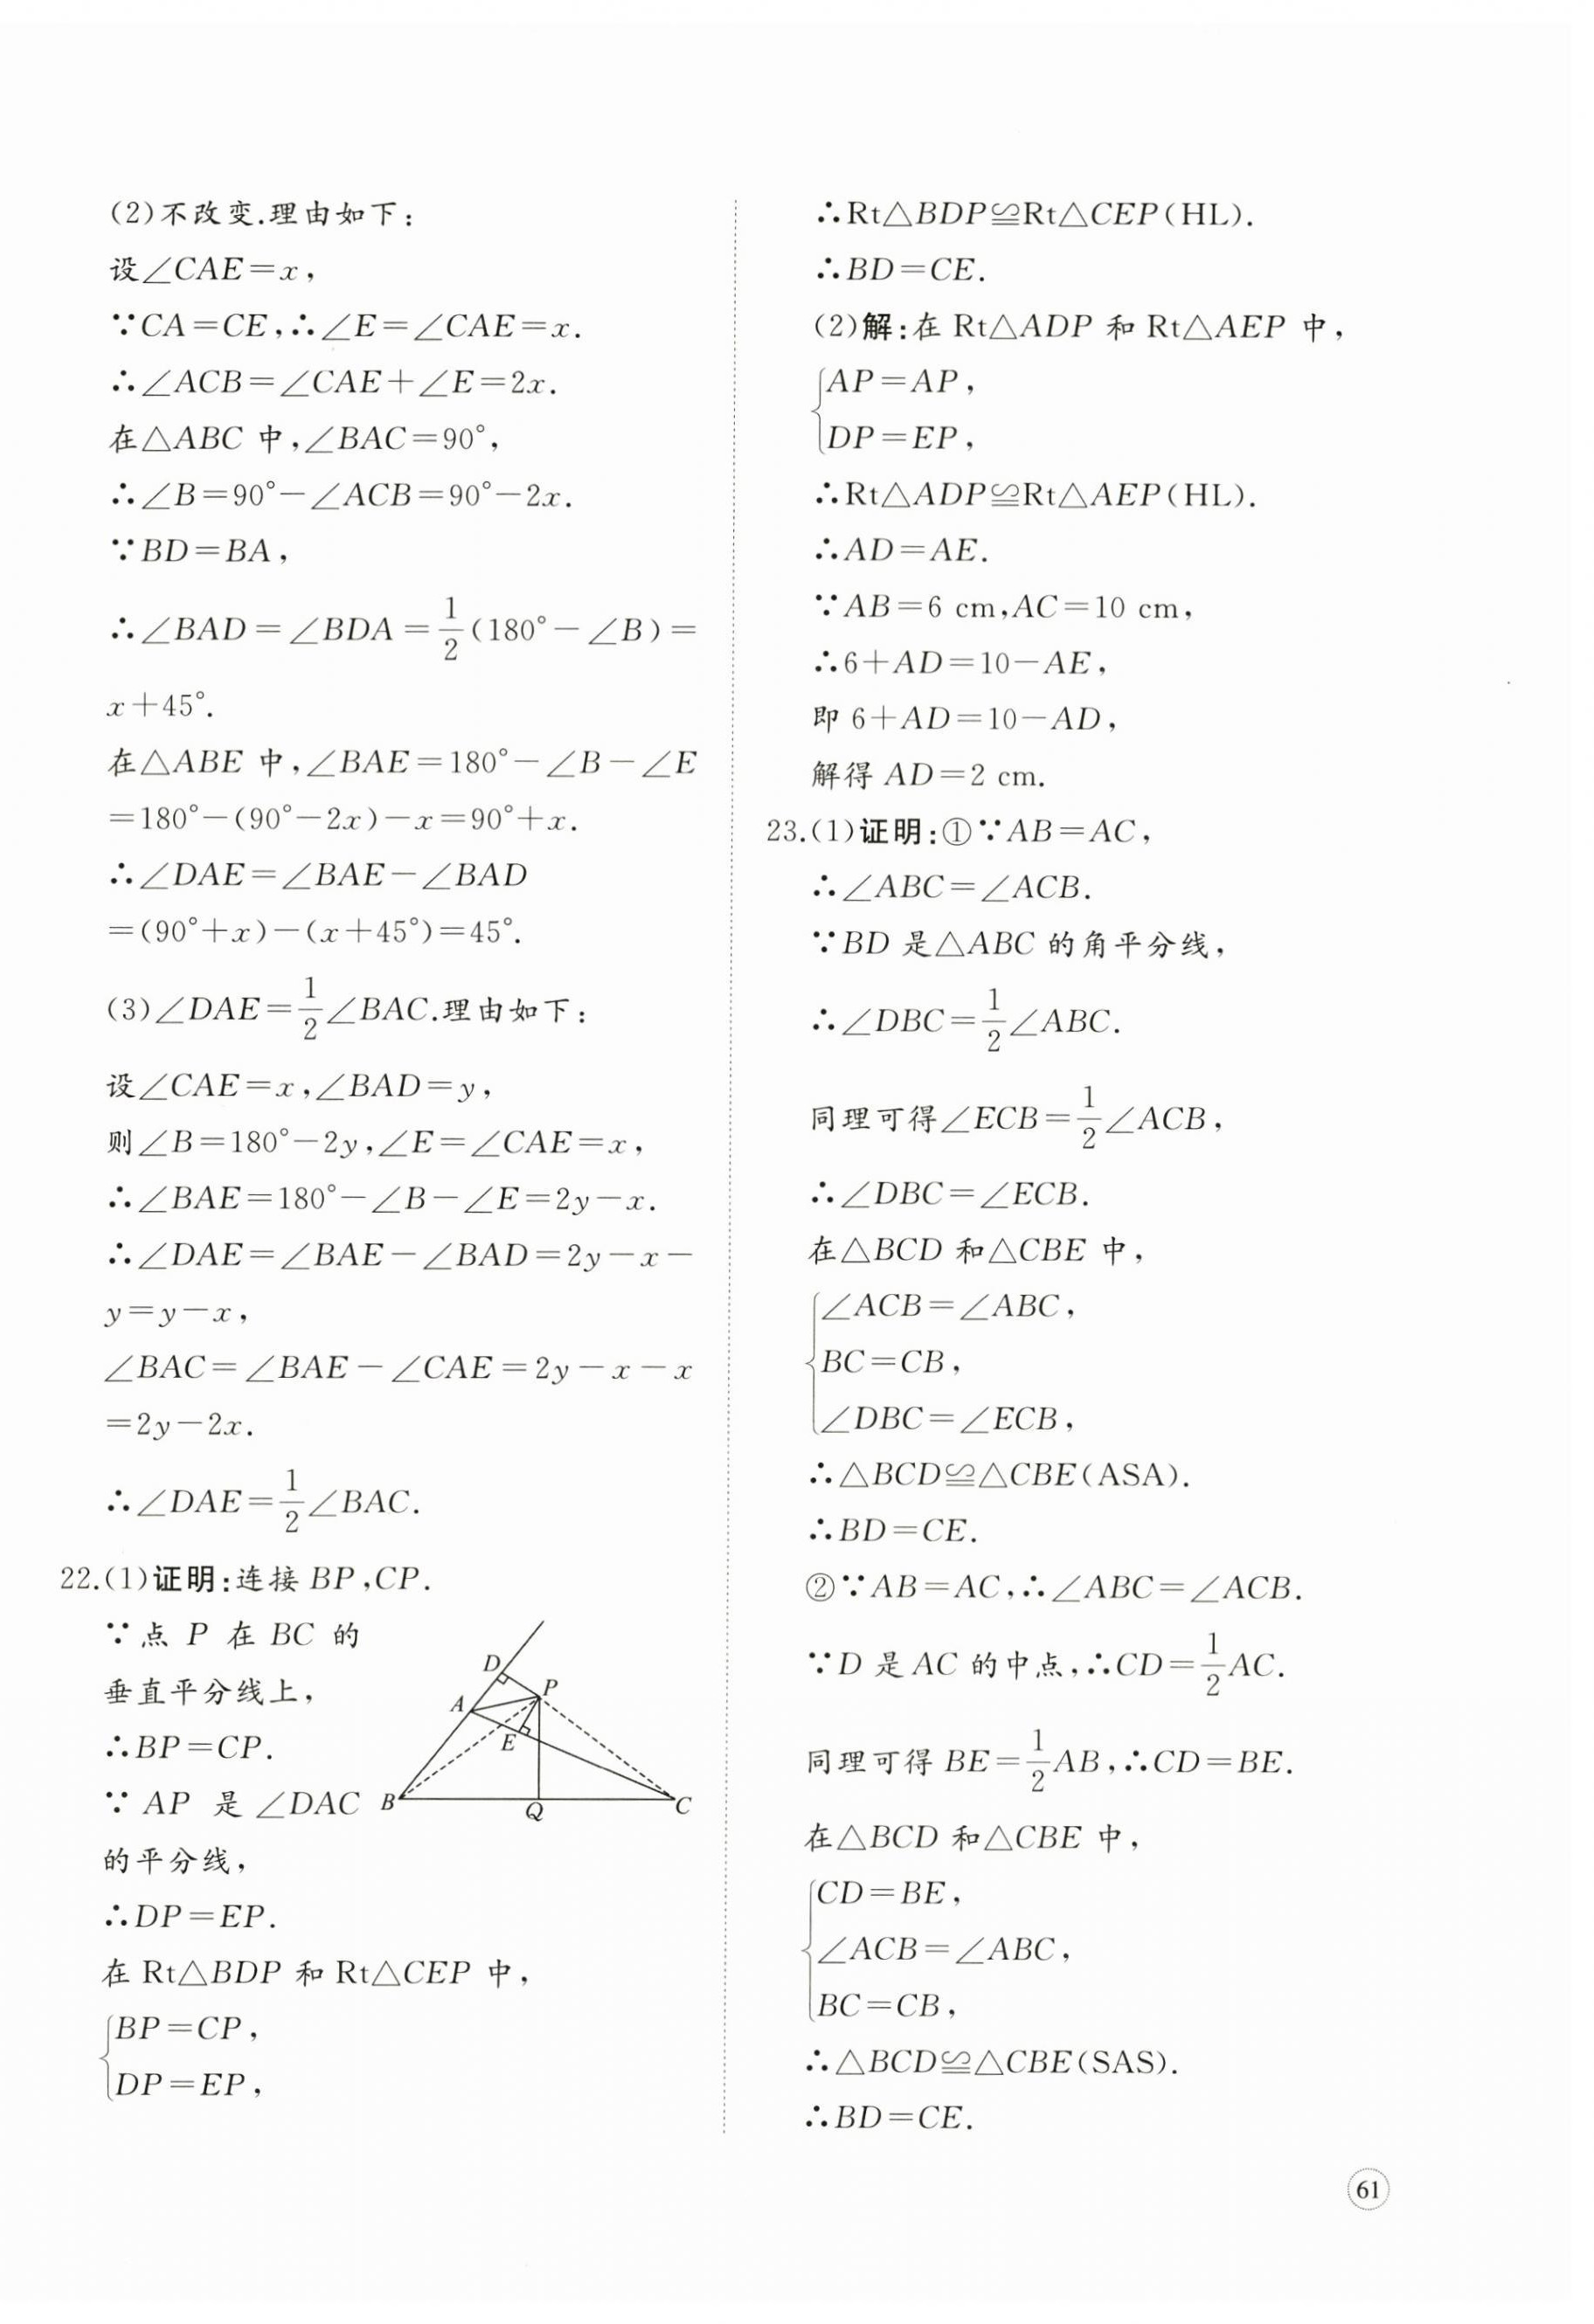 (2)不改变.理由如下:
设∠CAE=x,
∵CA=CE,∴∠E=∠CAE=x.
∴∠ACB=∠CAE+∠E=2x.
在△ABC 中,∠BAC=90°,
∴∠B=90°-∠ACB=90°-2x.
∵BD=BA,
∴∠BAD=∠BDA=1/2(180°-∠B)=
x+45°.
在△ABE 中,∠BAE=180°-∠B-∠E
=180°-(90°-2x)-x=90°+x.
∴∠DAE=∠BAE-∠BAD
=(90°+x)-(x+45°)=45°.
(3)∠DAE=1/2∠BAC.理由如下:
设∠CAE=x,∠BAD=y,
则∠B=180°-2y,∠E=∠CAE=x,
∴∠BAE=180°-∠B-∠E=2y-x.
∴∠DAE=∠BAE-∠BAD=2y-x-
y=y-x,
∠BAC=∠BAE-∠CAE=2y-x-x
=2y-2x.
∴∠DAE=1/2∠BAC.
22.(1)证明:连接 BP,CP.
∵点 P 在 BC 的
垂直平分线上,
∴BP=CP.
∵ AP 是 ∠DAC
的平分线,
∴DP=EP.
D
P
A
E
B
Q
C
在 Rt△BDP 和 Rt△CEP 中,
{BP=CP,
DP=EP,
∴Rt△BDP≌Rt△CEP(HL).
∴BD=CE.
(2)解:在 Rt△ADP 和 Rt△AEP 中,
{AP=AP,
DP=EP,
∴Rt△ADP≌Rt△AEP(HL).
∴AD=AE.
∵AB=6 cm,AC=10 cm,
∴6+AD=10-AE,
即 6+AD=10-AD,
解得 AD=2 cm.
23.(1)证明:①∵AB=AC,
∴∠ABC=∠ACB.
∵BD 是△ABC 的角平分线,
∴∠DBC=1/2∠ABC.
同理可得∠ECB=1/2∠ACB,
∴∠DBC=∠ECB.
在△BCD 和△CBE 中,
{∠ACB=∠ABC,
BC=CB,
∠DBC=∠ECB,
∴△BCD≌△CBE(ASA).
∴BD=CE.
②∵AB=AC,∴∠ABC=∠ACB.
∵D 是 AC 的中点,∴CD=1/2AC.
同理可得 BE=1/2AB,∴CD=BE.
在△BCD 和△CBE 中,
{CD=BE,
∠ACB=∠ABC,
BC=CB,
∴△BCD≌△CBE(SAS).
∴BD=CE.
61